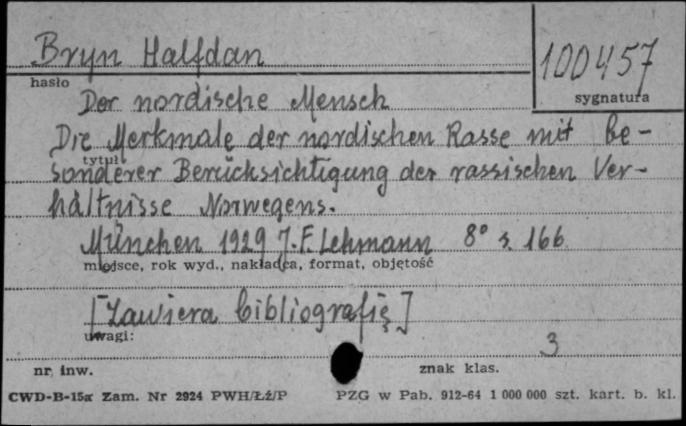 Bryn Halfdan
100457
hasło
sygnatura
Der nordische Mensch
Die Merkmale der nordischen Rasse mit be-
tytuł
sonderer Berücksichtigung der rassischen Ver-
hältnisse Norwegens.
München 1929 J. F. Lehmann 8° s. 166
miejsce, rok wyd., nakładca, format, objętość
[Zawiera bibliografię]
uwagi:
3
nr. inw.
znak klas.
CWD-B-15a Zam. Nr 2924 PWH/Łź/P
PZG w Pab. 912-64 1 000 000 szt. kart. b. kl.